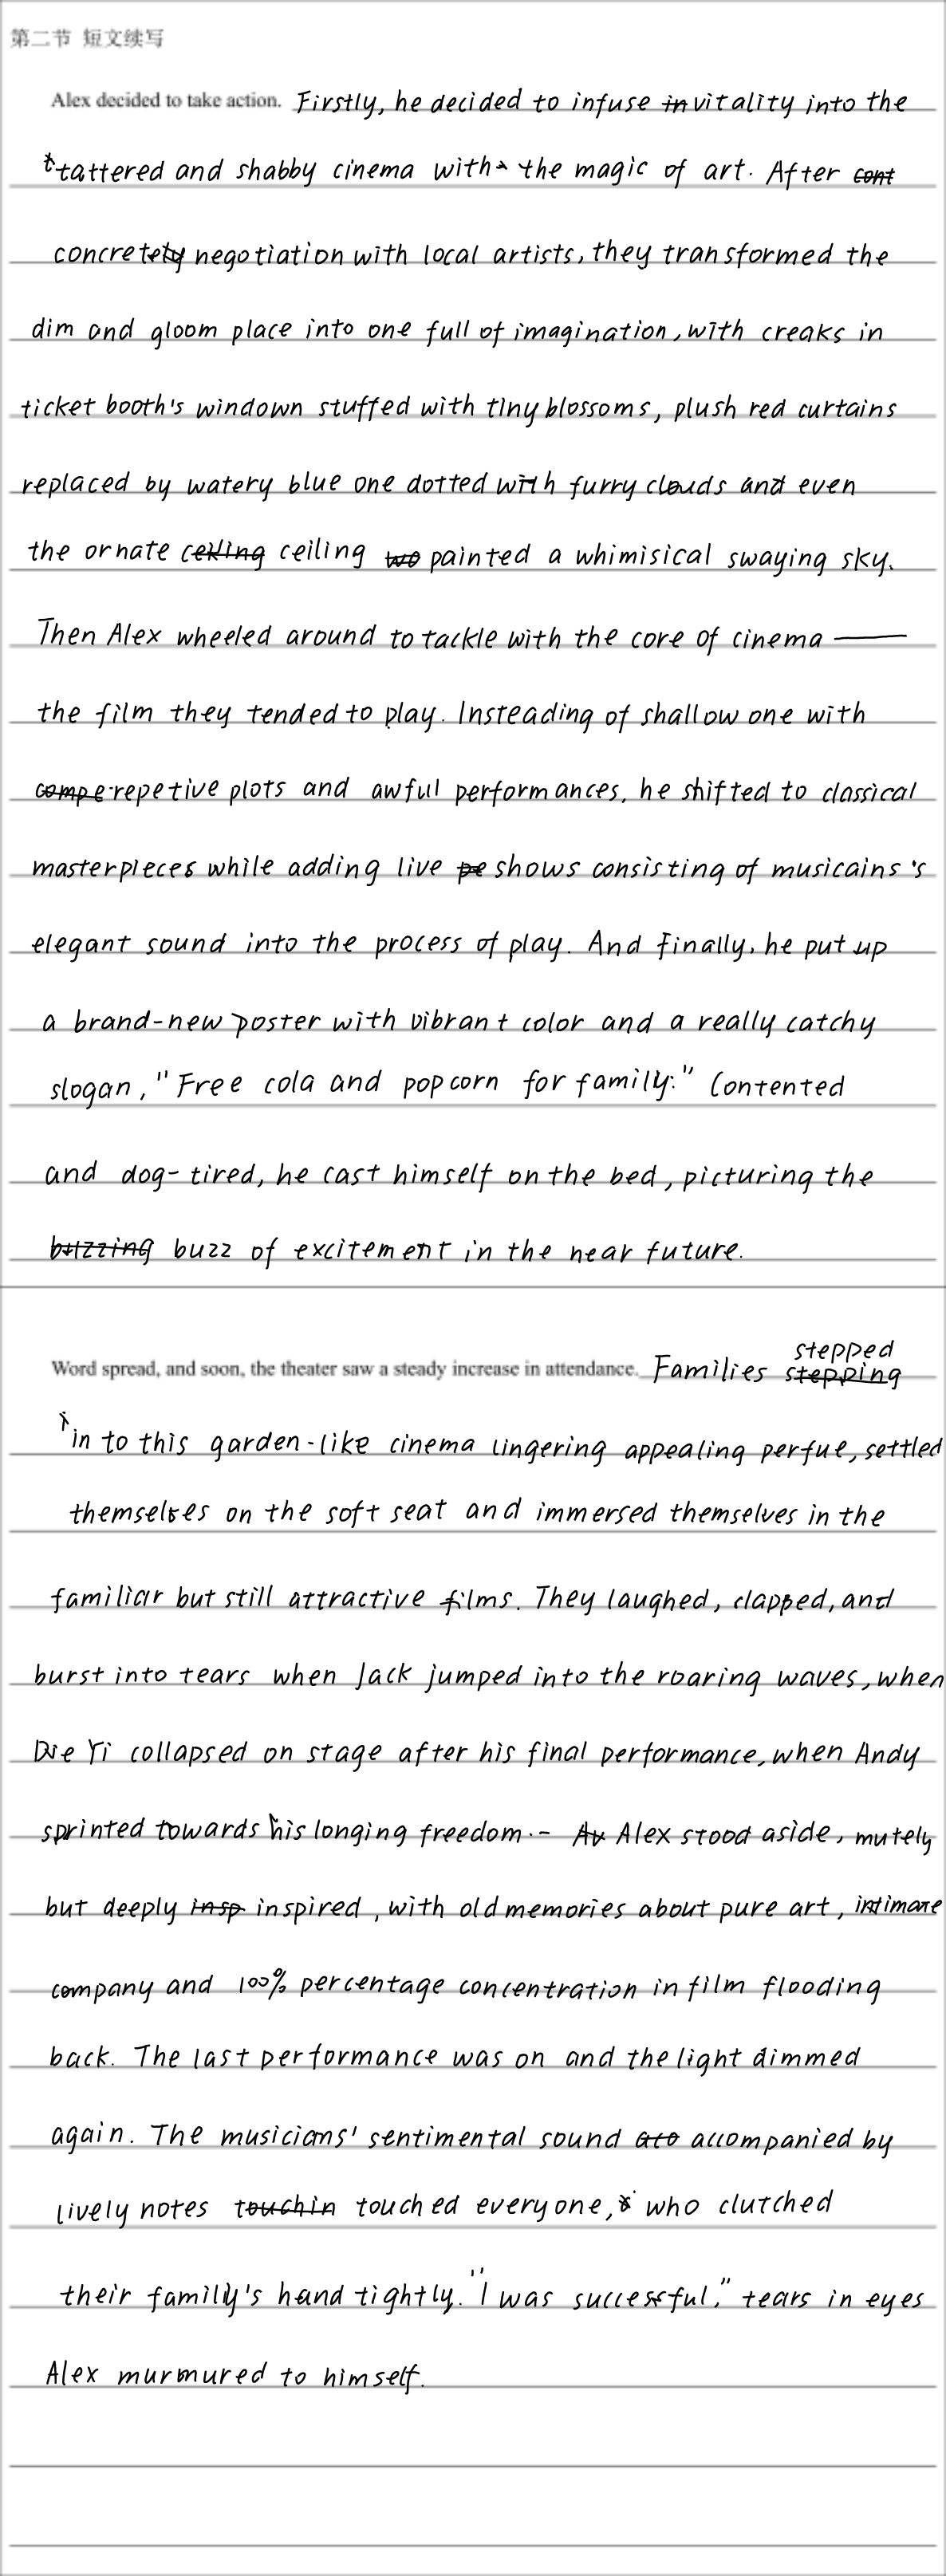 第二节 短文续写
Alex decided to take action. Firstly, he decided to infuse vitality into the
tattered and shabby cinema with the magic of art. After
concrete negotiation with local artists, they transformed the
dim and gloom place into one full of imagination, with creaks in
ticket booth's windown stuffed with tiny blossoms, plush red curtains
replaced by watery blue one dotted with furry clouds and even
the ornate ceiling painted a whimisical swaying sky.
Then Alex wheeled around to tackle with the core of cinema ——
the film they tended to play. Insteading of shallow one with
repetive plots and awful performances, he shifted to classical
masterpieces while adding live shows consisting of musicains 's
elegant sound into the process of play. And finally, he put up
a brand-new poster with vibrant color and a really catchy
slogan, "Free cola and popcorn for family." Contented
and dog-tired, he cast himself on the bed, picturing the
buzz of excitement in the near future.
Word spread, and soon, the theater saw a steady increase in attendance. Families stepped
in to this garden-like cinema lingering appealing perfue, settled
themselves on the soft seat and immersed themselves in the
familiar but still attractive films. They laughed, clapped, and
burst into tears when Jack jumped into the roaring waves, when
Die Yi collapsed on stage after his final performance, when Andy
sprinted towards his longing freedom.- Alex stood aside, mutely
but deeply inspired, with old memories about pure art, intimate
company and 100% percentage concentration in film flooding
back. The last performance was on and the light dimmed
again. The musicians' sentimental sound accompanied by
lively notes touched everyone, who clutched
their family's hand tightly. "I was successful," tears in eyes
Alex murmured to himself.